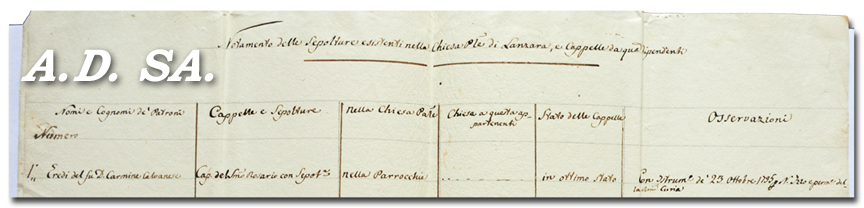 Notamento delle Sepolture esistenti nella Chiesa Ple di Lanzara, e Cappelle da quella dipendenti
A.D. SA.
Nomi e Cognomi de' Patroni
Cappelle e Sepolture
nella Chiesa Parle
Chiese a questa ap-
partenenti
Stato delle Cappelle
Osservazioni
Número
1° Eredi del fu D. Carmine Calvanese
Cap. del Smo Rosario con Sepolt.
nella Parrocchia
in ottimo Stato
Con Istrumto de' 25 Ottobre 1785 del
Curia